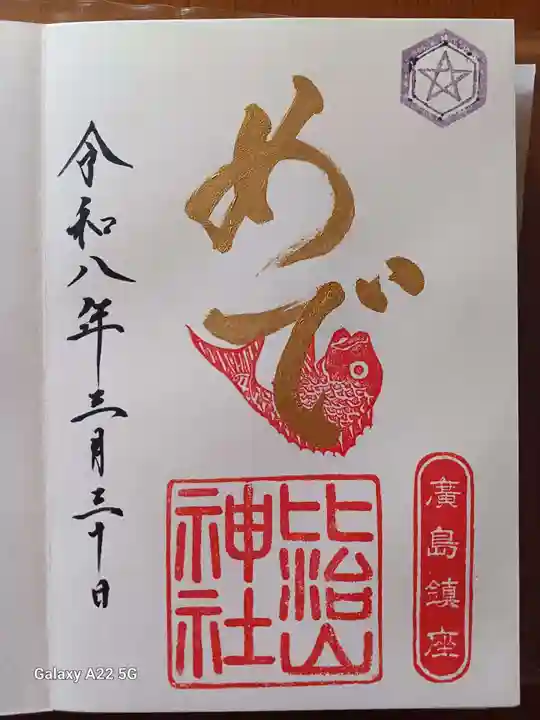 めで
廣島鎮座
比治山
神社
令和八年三月三十日
Galaxy A22 5G